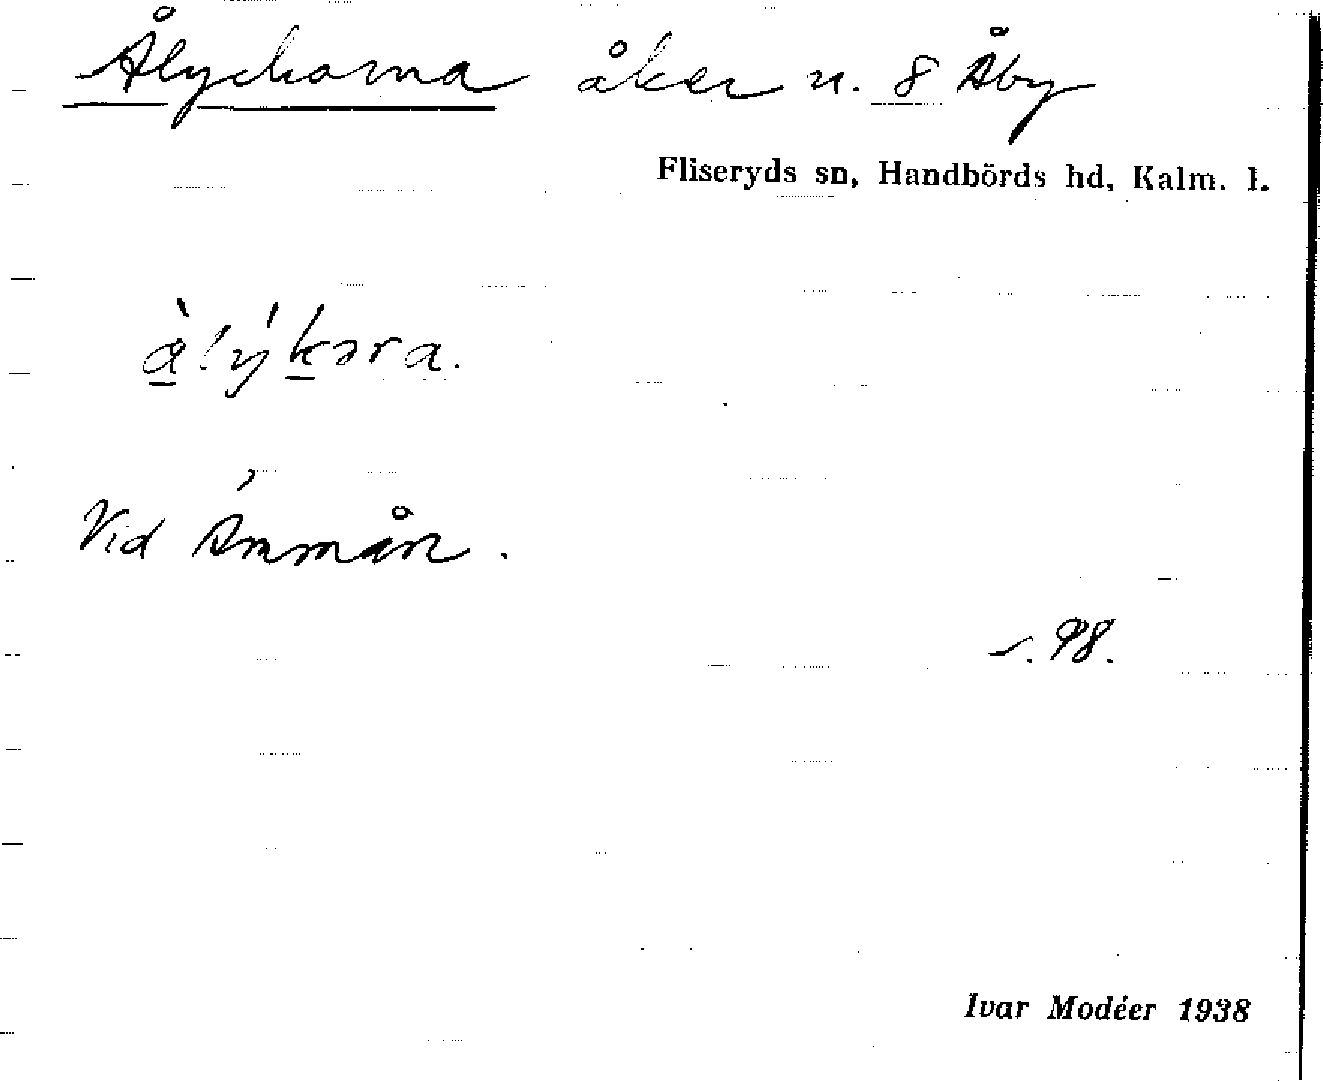 Ålyckorna åker n. 8 Åby
Fliseryds sn, Handbörds hd, Kalm. l.
àlýkəra.
Vid Ámmån.
s. 98.
Ivar Modéer 1938